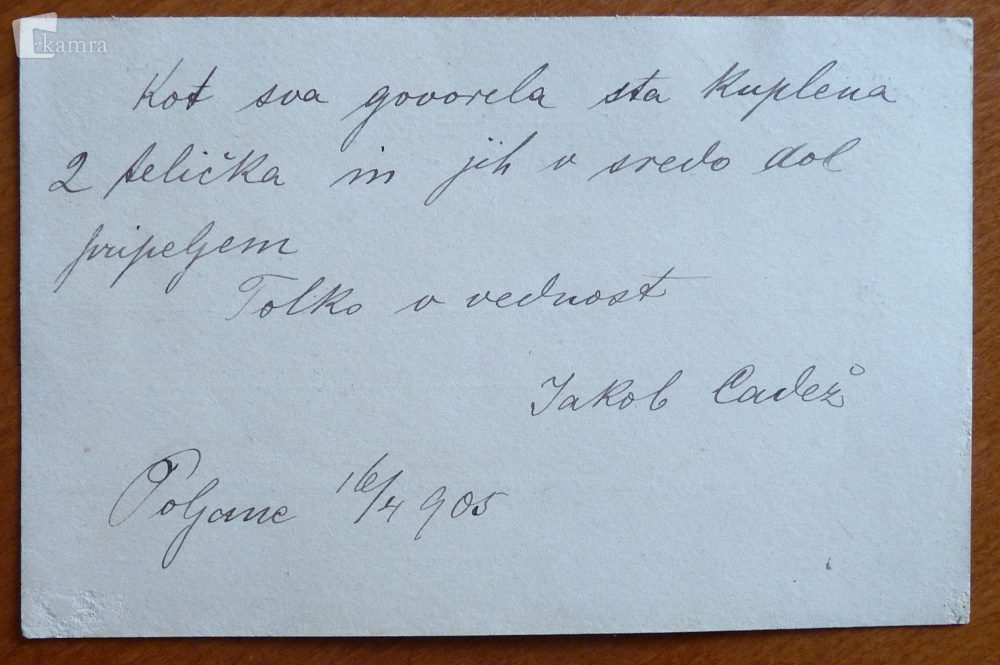 kamra
Kot sva govorela sta kuplena
2 telička in jih v sredo dol
pripeljem
Tolko v vednost
Jakob Cadež
Poljane 16/4 905